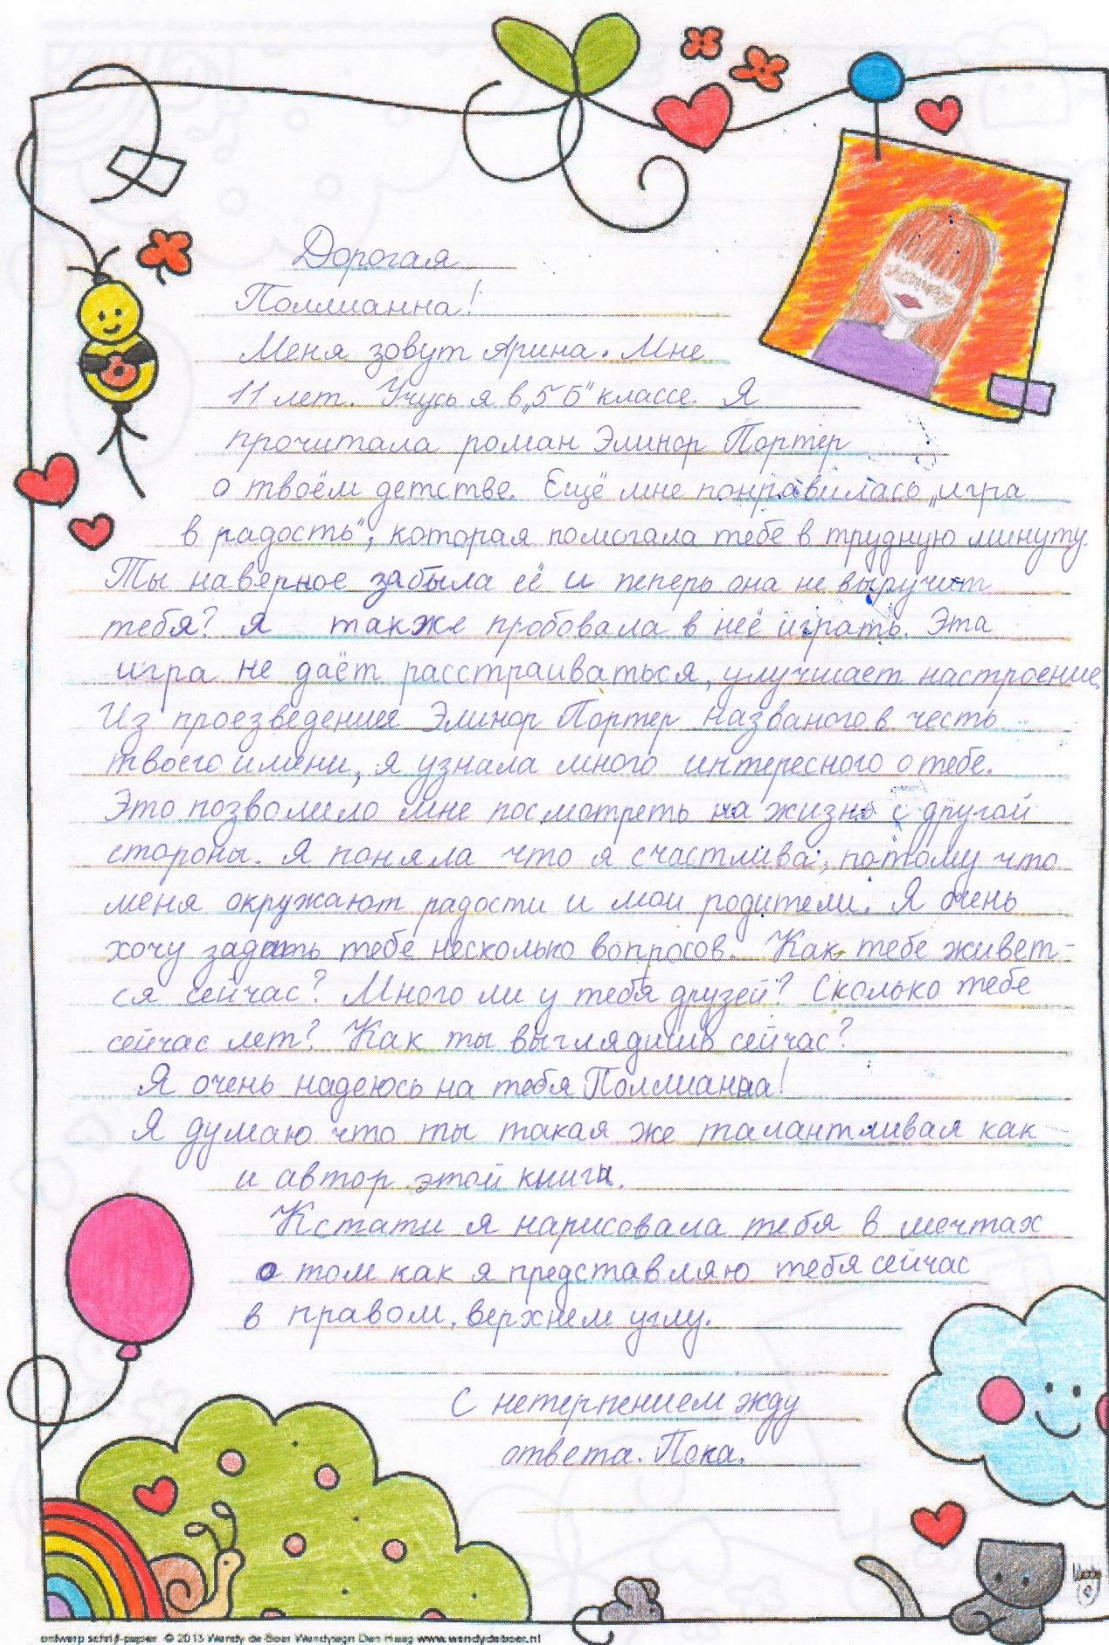 Дорогая
Поллианна!
Меня зовут Арина. Мне
11 лет. Учусь я в „5 Б" классе. Я
прочитала роман Элинор Портер
о твоём детстве. Ещё мне понравилась „игра
в радость", которая помогала тебе в трудную минуту.
Ты наверное забыла её и теперь она не выручит
тебя? Я также пробовала в неё играть. Эта
игра не даёт расстраиваться, улучшает настроение.
Из проезведения Элинор Портер названого в честь
твоего имени, я узнала много интересного о тебе.
Это позволило мне посмотреть на жизнь с другой
стороны. Я поняла что я счастлива, потому что
меня окружают радости и мои родители. Я очень
хочу задать тебе несколько вопросов. Как тебе живет-
ся сейчас? Много ли у тебя друзей? Сколько тебе
сейчас лет? Как ты выглядишь сейчас?
Я очень надеюсь на тебя Поллианна!
Я думаю что ты такая же талантливая как
и автор этой книги.
Кстати я нарисовала тебя в мечтах
о том как я представляю тебя сейчас
в правом, верхнем углу.
С нетерпением жду
ответа. Пока.
ontwerp schrijf-papier © 2013 Wendy de Boer Wendysign Den Haag www.wendydeboer.nl